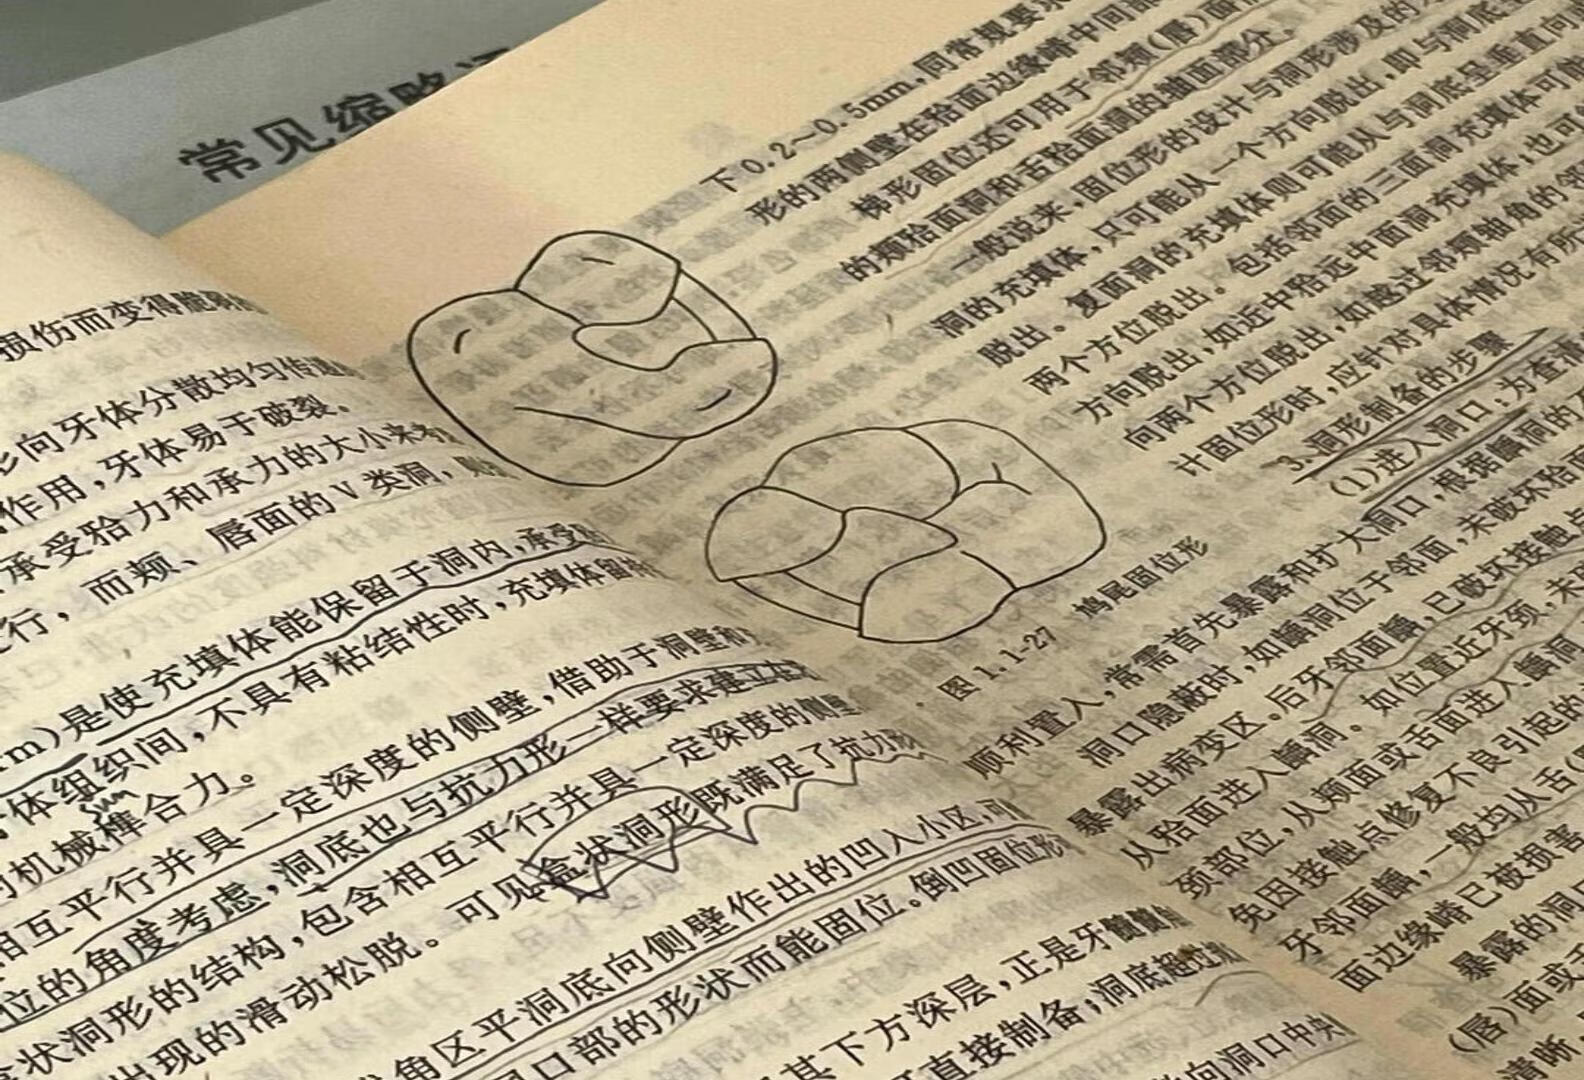 常见缩略
损伤而变得脆弱
向牙体分散均匀传递
作用，牙体易于破裂。
承受𬌗力和承力的大小来考
行，而颊、唇面的Ⅴ类洞，
rm)是使充填体能保留于洞内，承受
体组织间，不具有粘结性时，充填体留
机械榫合力。
相互平行并具一定深度的侧壁，借助于洞壁和
位的角度考虑，洞底也与抗力形一样要求建立在
状洞形的结构，包含相互平行并具一定深度的侧壁
出现的滑动松脱。可见盒状洞形既满足了抗力形
角区平洞底向侧壁作出的凹入小区，
口部的形状而能固位。倒凹固位形
其下方深层，正是牙髓
直接制备；洞底超过
向洞口中央
下0.2～0.5mm，同常规要求
形的两侧壁在𬌗面边缘嵴中间部
梯形固位还可用于邻颊(唇)面
的颊𬌗面洞和舌𬌗面洞的轴面部分。
一般说来，固位形的设计与洞形涉及的
洞的充填体，只可能从一个方向脱出，即与洞底呈垂直向
脱出。复面洞的充填体则可能从与洞底
两个方位脱出。包括邻面的三面洞充填体可能
方向脱出，如近中𬌗远中面洞充填体；也可
向两个方位脱出，如越过邻颊轴角的邻
计固位形时，应针对具体情况有所
3.洞形制备的步骤
(1)进入洞口：为查清
图1.1-27 鸠尾固位形
顺利置入，常需首先暴露和扩大洞口，根据龋洞的
洞口隐蔽时，如龋洞位于邻面，未破坏𬌗面
暴露出病变区。后牙邻面龋，已破坏接触点
从𬌗面进入龋洞。如位置近牙颈，未
颈部位，从颊面或舌面进入龋洞
免因接触点修复不良引起的
牙邻面龋，一般均从舌(
面边缘嵴已被损害
暴露的洞
(唇)面或
清晰